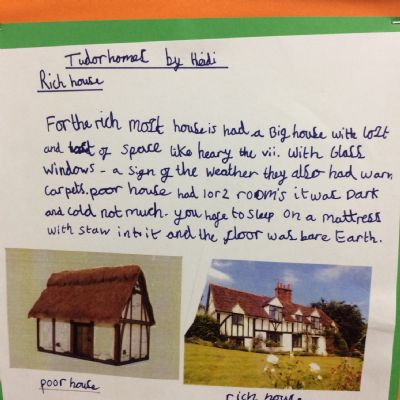 Tudor homes by Heidi
Rich house
For the rich most house is had a Big house with lost
and of space like heary the vii. With Glass
windows - a sign of the weather they also had warm
carpets. poor house had 1 or 2 room's it was Dark
and cold not much - you hope to sleep on a mattress
with staw in to it and the floor was bare Earth.
poor house
rich house